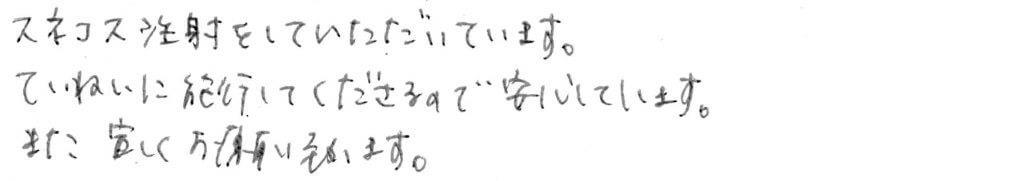 スネコス注射をしていただいています。
ていねいに施術してくださるので安心しています。
また宜しくお願い致します。